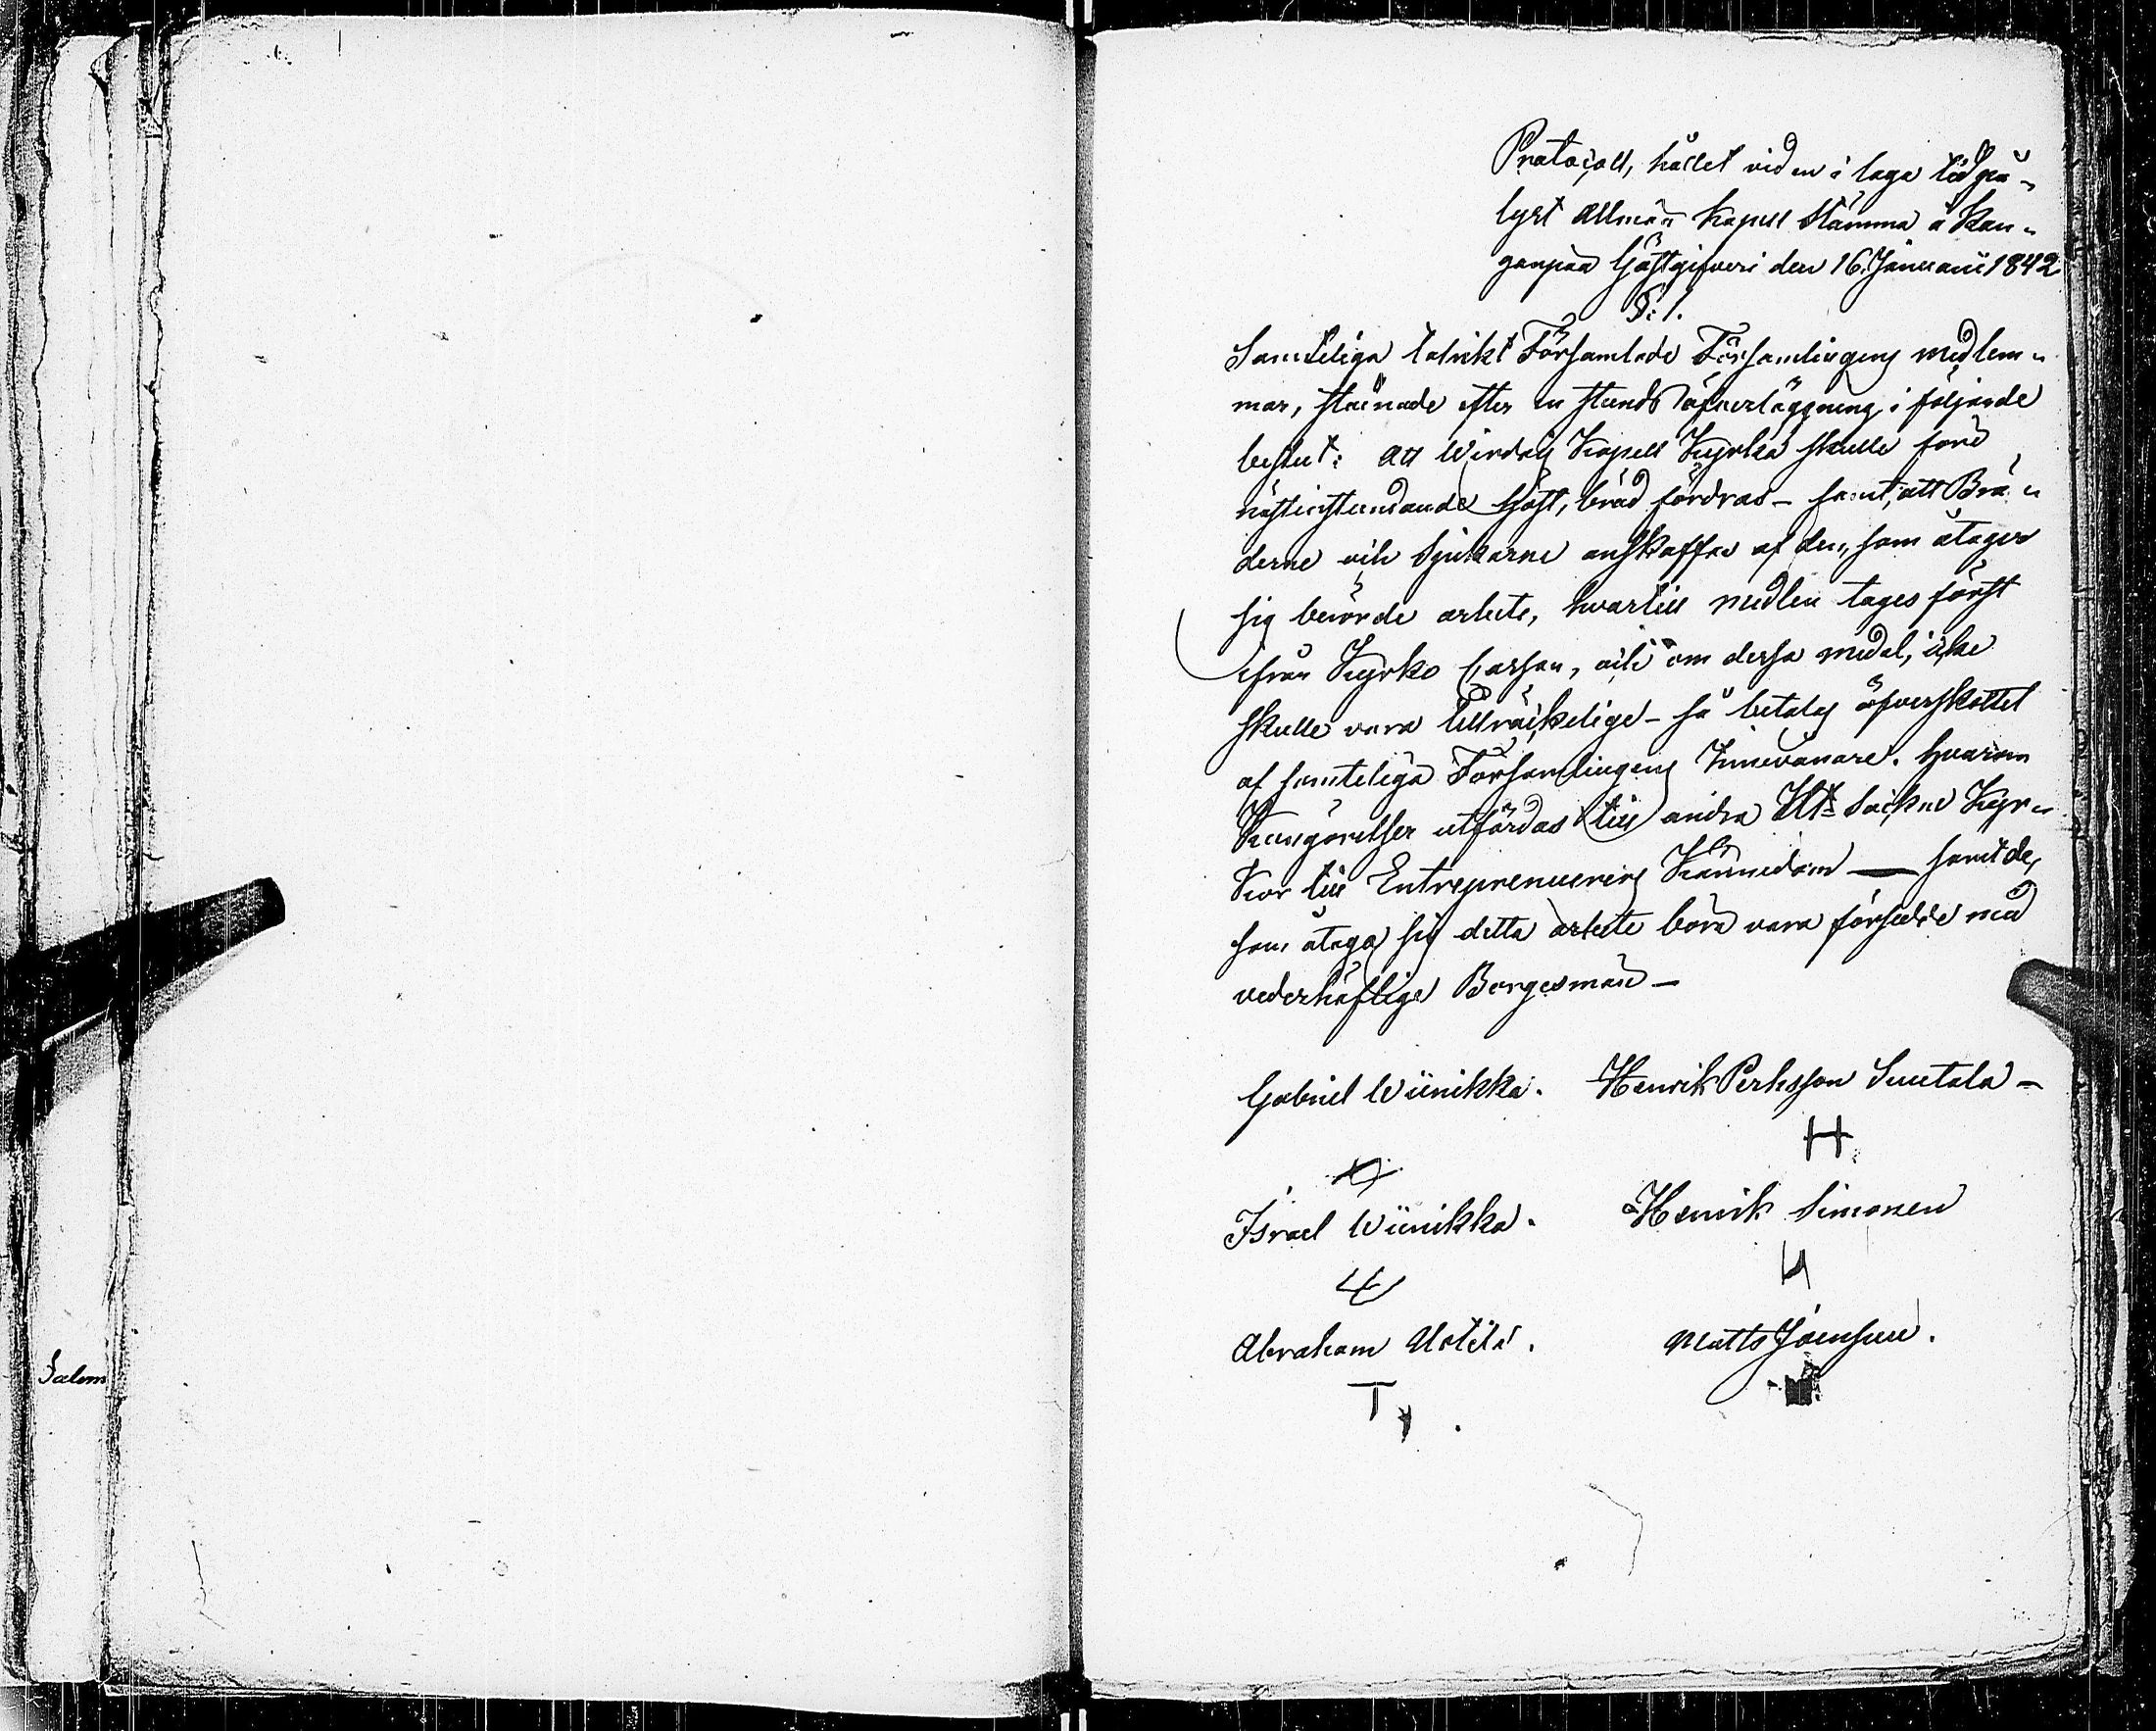 Protocoll, hållet vid en i laga tid på„
lyst Allmän Kapell Stämma å Kan„
ganpää Gästgifveri den 16. Januarii 1842.
§. 1.
Samteliga talrikt Församlade Församlingens medlem„
mar, stannade efter en stunds öfverläggning i följande
beslut: Att Wirdois Kapell Kyrka skulle före
nästinstundande höst, brädfordras – samt, att Brä„
derne och Spikarne anskaffas af den, som åtager
sig berörde arbete, hvartill medlen tages först
ifrån Kyrko Cassan, och om dessa medel, icke
skulle vara tillräckelige – så betalas öfverskottet
af samteliga Församlingens Innevånare. Hvarom
Kungörelser utfärdas till andra Sockne Kyr„
kor till Entreprenneurers Kännedom — samt de,
som åtaga sig detta arbete böra vara försedde med
vederhäftige Borgesmän –
Gabriel Wiinikka. Henrik Perhsson Suutala –
H
Israel Wiinikka. Henrik Simonen
Abraham Matts Joensuu.
T
Salem